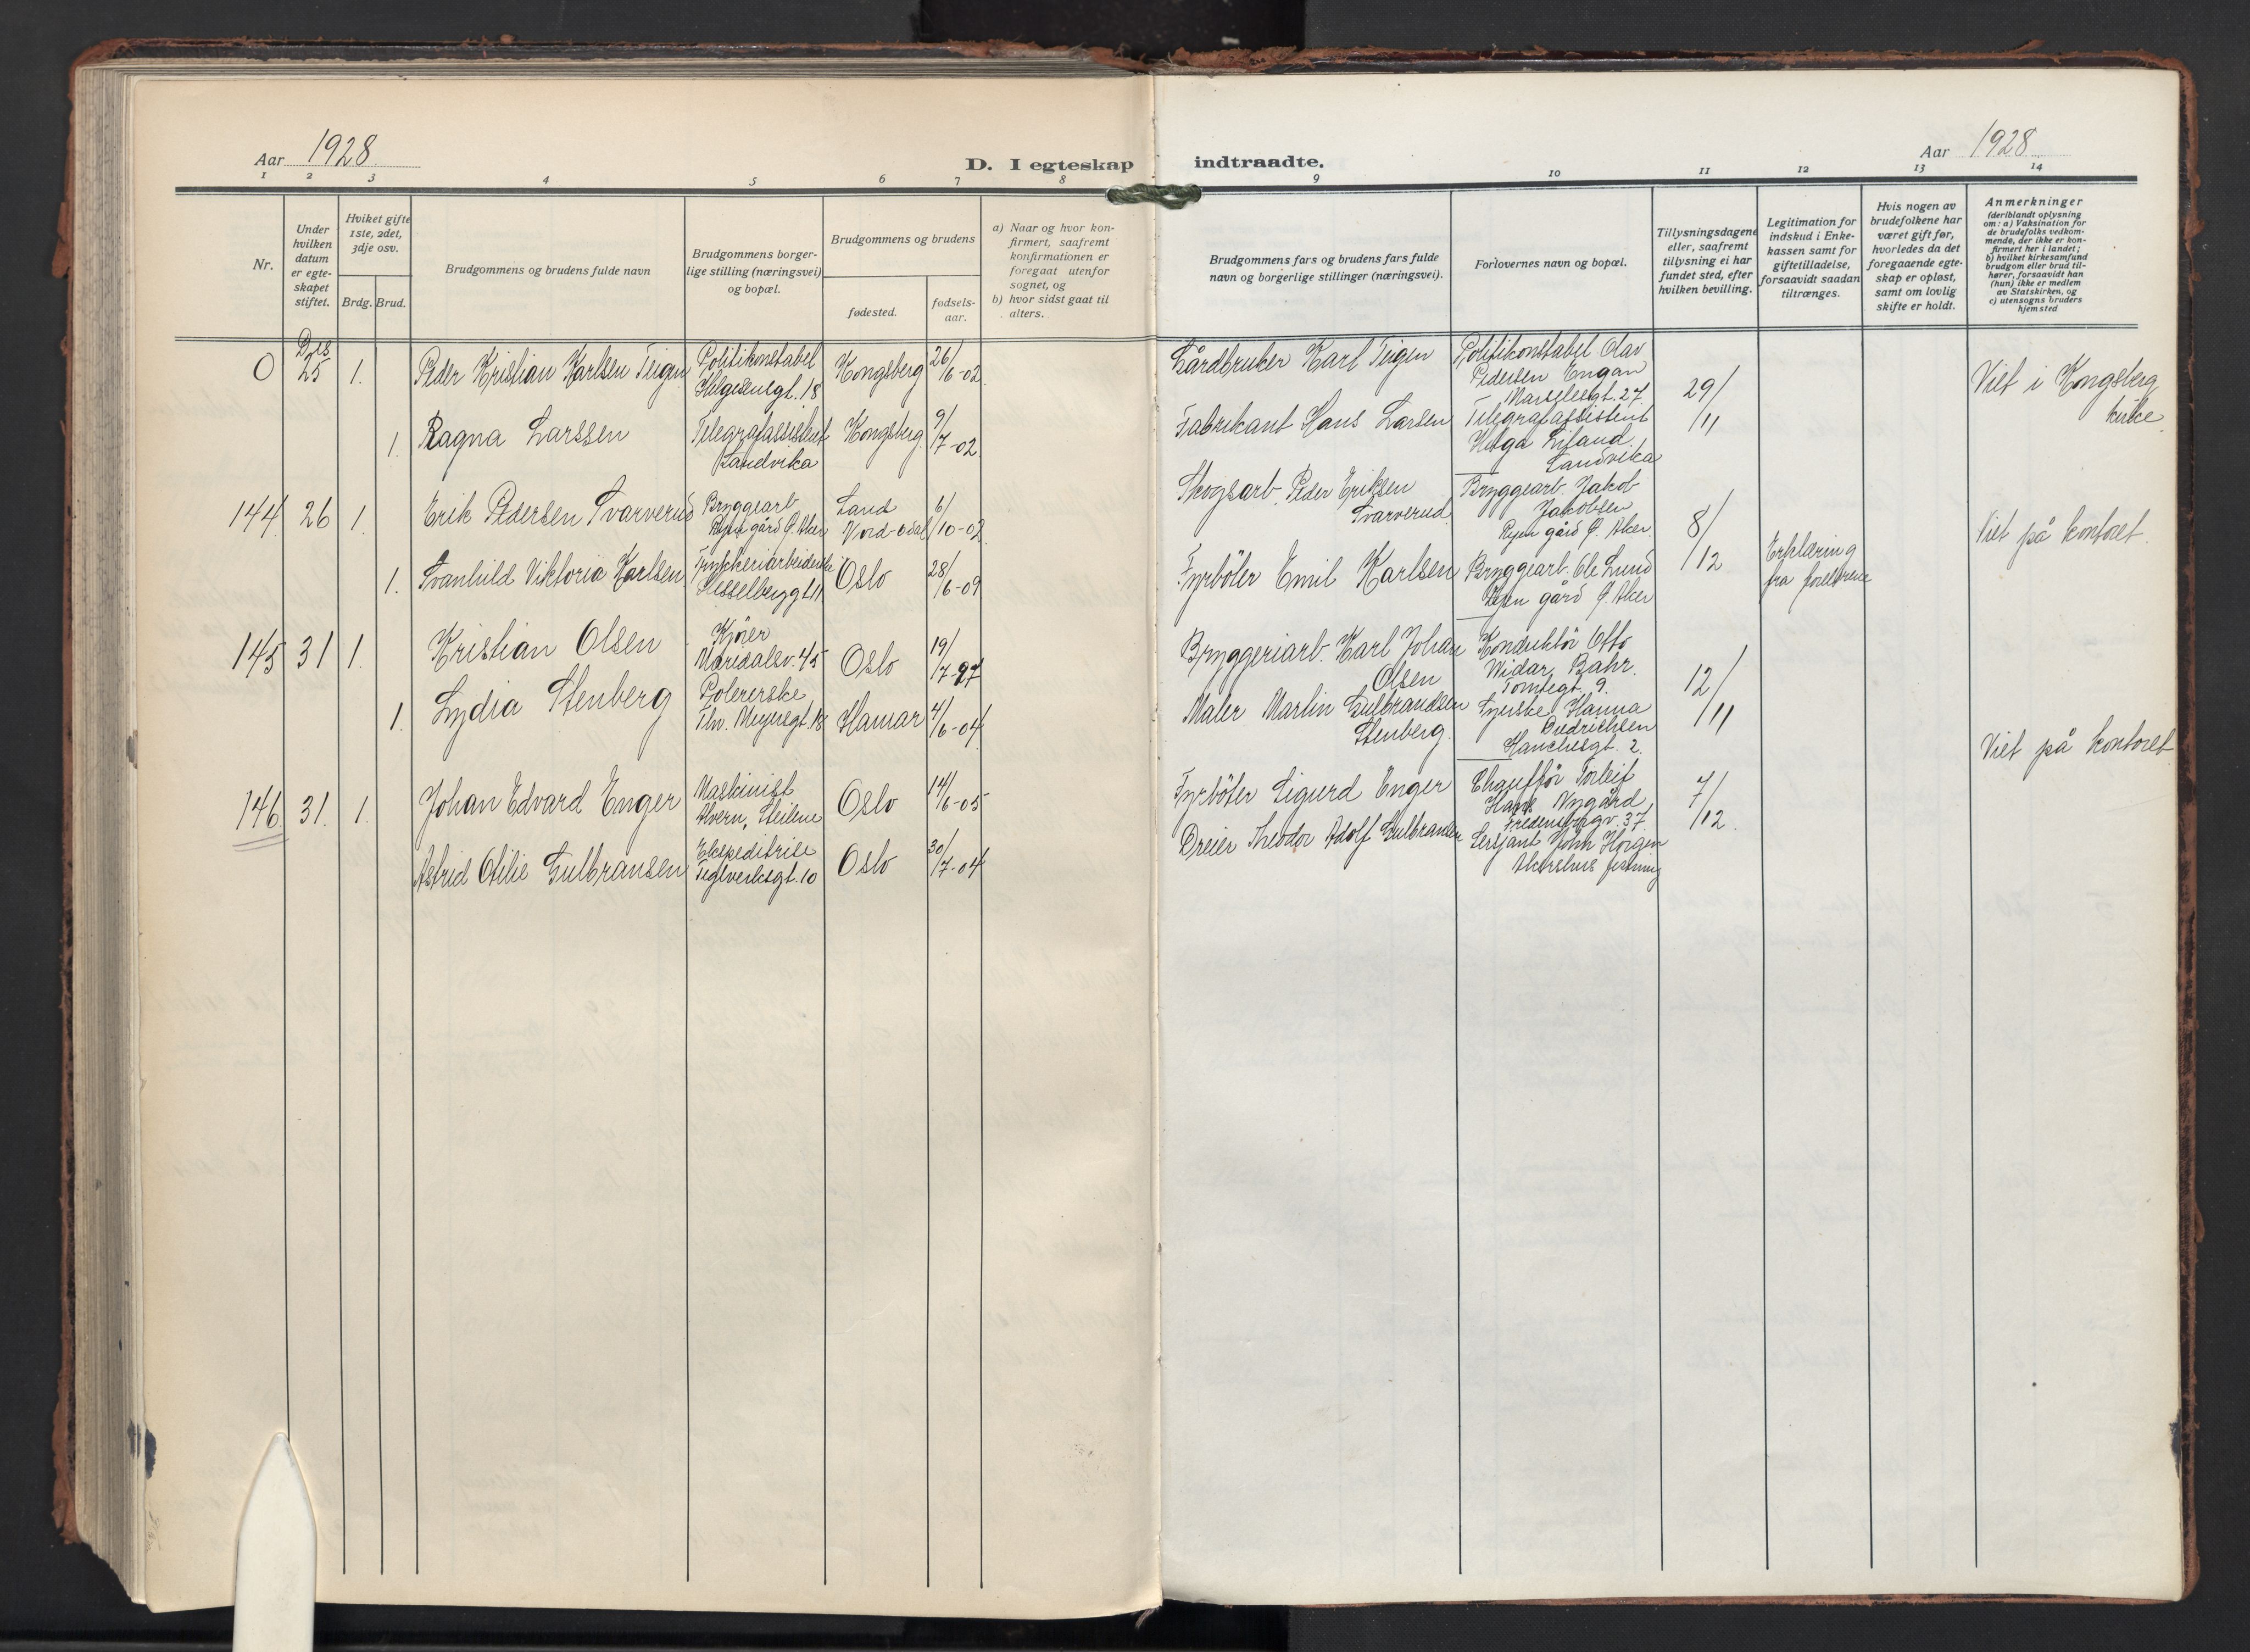 Aar 1928
D. I egteskap indtraadte.
Aar 1928
1 2 3 4 5 6 7 8 9 10 11 12 13 14
Nr.
Under hvilken datum er egteskapet stiftet.
Hviket gifte 1ste, 2det, 3dje osv.
Brdg. Brud.
Brudgommens og brudens fulde navn
Brudgommens borger-
lige stilling (næringsvei)
og bopæl.
Brudgommens og brudens
fødested.
fødsels-
aar.
a) Naar og hvor kon-
firmert, saafremt
konfirmationen er
foregaat utenfor
sognet, og
b) hvor sidst gaat til
alters.
Brudgommens fars og brudens fars fulde
navn og borgerlige stillinger (næringsvei).
Forlovernes navn og bopæl.
Tillysningsdagene
eller, saafremt
tillysning ei har
fundet sted, efter
hvilken bevilling.
Legitimation for
indskud i Enke-
kassen samt for
giftetilladelse,
forsaavidt saadan
tiltrænges.
Hvis nogen av
brudefolkene har
været gift før,
hvorledes da det
foregaaende egte-
skap er opløst,
samt om lovlig
skifte er holdt.
Anmerkninger
(deriblandt oplysning
om: a) Vaksination for
de brudefolks vedkom-
mende, der ikke er kon-
firmert her i landet;
b) hvilket kirkesamfund
brudgom eller brud til-
hører, forsaavidt han
(hun) ikke er medlem
av Statskirken, og
c) utensogns bruders
hjemsted
0 Des 25 1. Peder Kristian Karlsen Teigen
Politikonstabel
Helgesensgt. 18
Kongsberg 26/6-02
Gårdbruker Karl Teigen
Politikonstabel Olav
Pedersen Engan
27
29/11
Viet i Kongsberg
kirke.
1. Ragna Larssen
Telegrafassistent
Sandvika
Kongsberg 9/7-02
Fabrikant Hans Larsen
Telegrafassistent
Helga
Sandvika
144. 26 1. Erik Pedersen Svarverud
Bryggearb.
Ryen gård Ø. Aker
Sand
Nord-Odal
6/10-02
Skogsarb. Peder Eriksen
Svarverud
Bryggearb. Jakob
Jakobsen
Ryen gård Ø. Aker
8/12
Viet på kontoret.
1. Svanhild Viktoria Karlsen
Trykkeriarbeiderske
Hesselberggt. 11
Oslo 28/6-09
Fyrböter Emil Karlsen
Bryggearb. Ole Lund
Ryen gård Ø. Aker
Erklæring
fra foreldrene
145 31 1. Kristian Olsen
Kjörer
Maridalsv. 45
Oslo 19/7-97
Bryggeriarb. Karl Johan
Olsen
Konduktör Otto
Widar Bahr.
Tomtegt. 9.
12/11
1. Lydia Stenberg
Polererske
Thv. Meyersgt. 18
Hamar 4/6-04
Maler Martin Gulbrandsen
Stenberg.
Syerske Hanna
Diedrichsen
Hauchesgt. 2.
Viet på kontoret
146. 31. 1. Johan Edvard Enger
Maskinist
Alvern, Steilene
Oslo 14/6-05
Fyrböter Sigurd Enger
Chaufför Torleif
Hans Nygård,
Fredensborgv. 37.
7/12.
Astrid Otilie Gulbransen
Ekspeditrise
Teglverksgt. 10
Oslo 30/7-04
Dreier Theodor Adolf Gulbransen
Sersjant John Horgen
Akershus festning